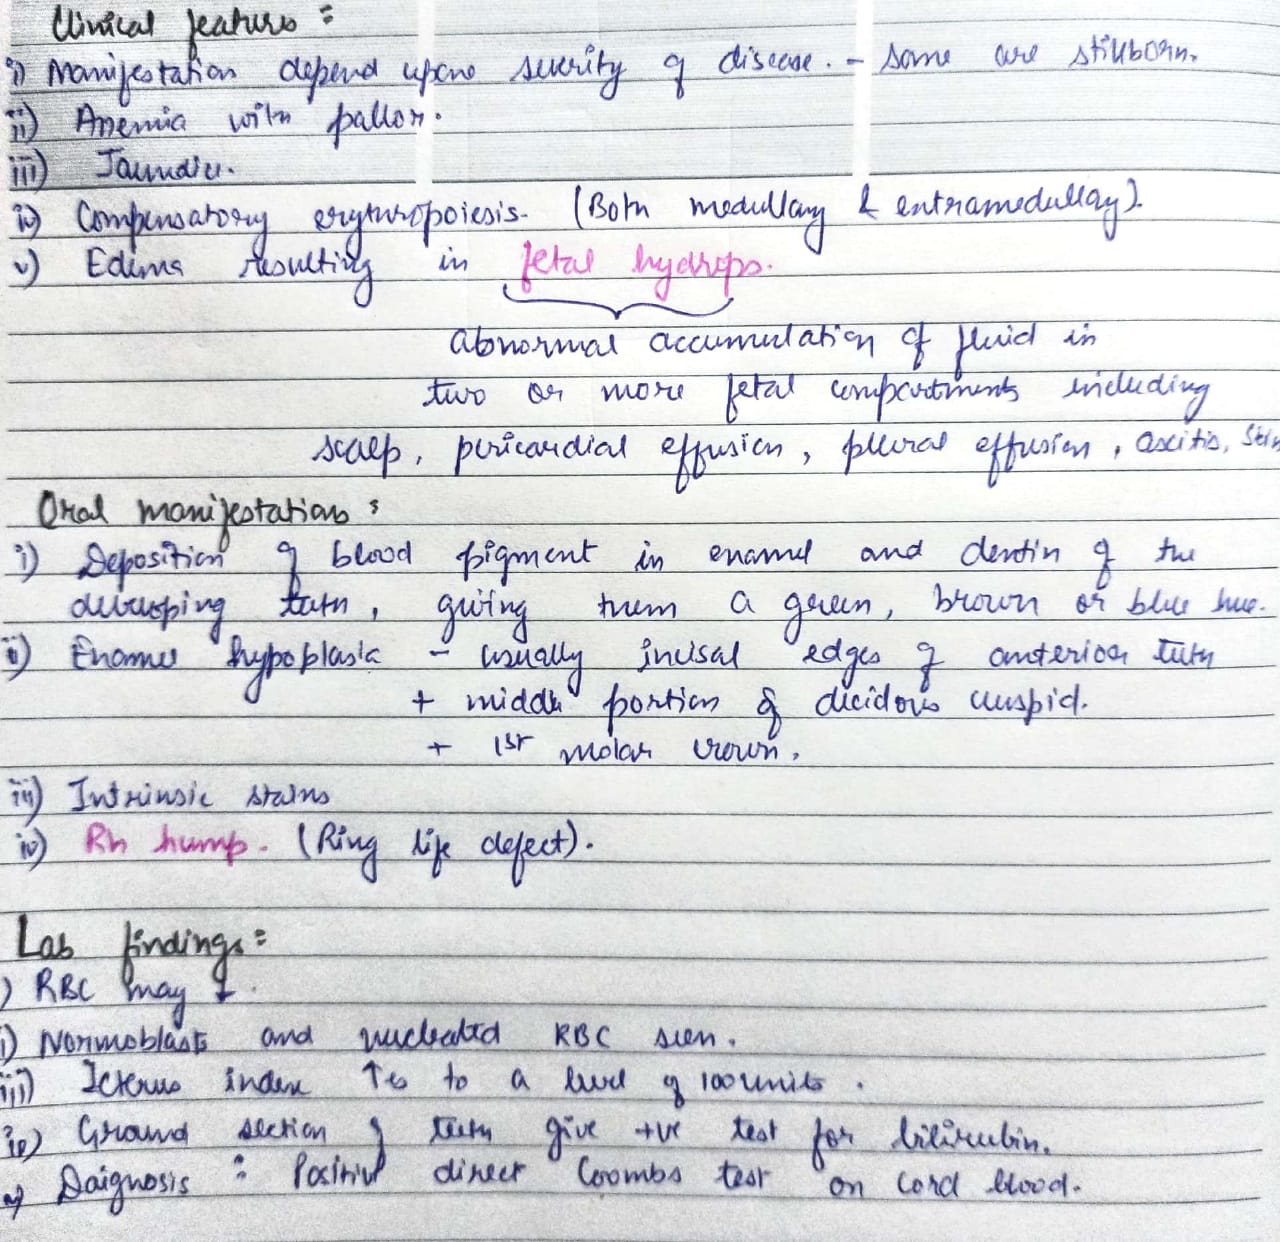 Clinical features :
i) Manifestation depend upone severity of disease. - some are stillborn.
ii) Anemia with pallor.
iii) Jaundice.
iv) Compensatory erythropoiesis. (Both medullary & extramedullay).
v) Edema resulting in fetal hydrops.
abnormal accumulation of fluid in
two or more fetal compartments including
scalp, pericardial effusion, pleural effusion, ascitis, Skin
Oral manifestations :
i) Deposition of blood pigment in enamel and dentin of the
developing teeth, giving them a green, brown or blue hue.
ii) Enamel hypoplasia - usually incisal edges of anterior teeth
+ middle portion of decidous cuspid.
+ 1st molar crown.
iii) Intrinsic stains
iv) Rh hump. (Ring life defect).
Lab findings :
) RBC may ↓.
i) Normoblasts and nucleated RBC seen.
iii) Icterus index ↑es to a level of 100 units.
iv) Ground section of teeth give +ve test for bilirubin.
v) Daignosis : Positive direct Coombs test on cord blood.